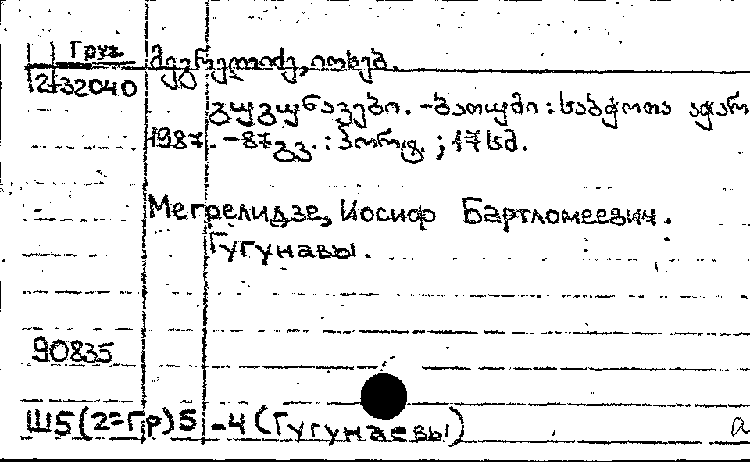 Груз. მეგრელიძე, იოსებ.
12-32040
გუგუნავები. -ბათუმი : საბჭოთა აჭარ
1987. -87გვ. : პორტ. ; 17 სმ.
Мегрелидзе, Иосиф Бартломеевич.
Гугунавы.
90835
Ш5(2=Гр)5 -4 (Гугунаевы)